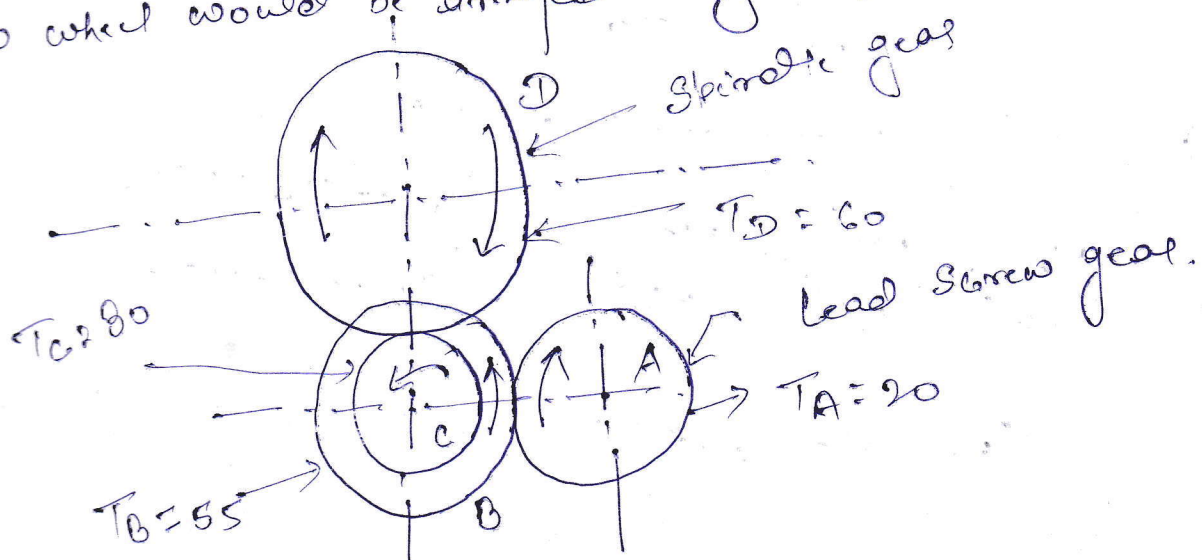 wheel would be
D
Spindle gear
TD = 60
Lead Screw gear.
TC = 80
A
TA = 20
C
TB = 55
B